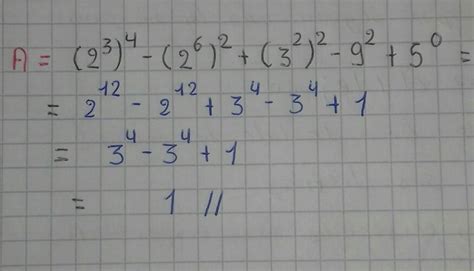 A = (2³)⁴ - (2⁶)² + (3²)² - 9² + 5⁰ =
= 2¹² - 2¹² + 3⁴ - 3⁴ + 1
= 3⁴ - 3⁴ + 1
= 1 //